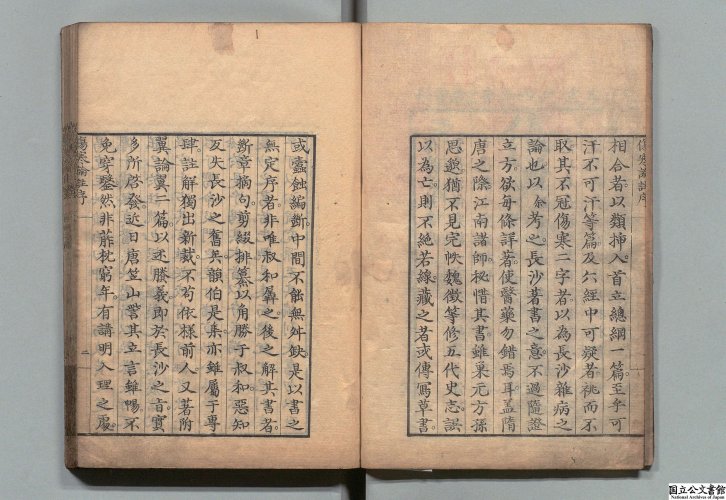 傷寒論註序
相合者以類揷入首立總綱一篇至乎可
汗不可汗等篇及六經中可疑者祧而不
取其不冠傷寒二字者以為長沙雜病之
論也以余考之長沙著書之意不過隨證
立方欲每條詳著使醫藥勿錯焉耳盖隋
唐之際江南諸師秘惜其書雖巢元方孫
思邈猶不見完帙魏徵等修五代史志誤
以為亡則不絕若線藏之者或傳寫草書
或蠹蝕編斷中間不能無舛缺是以書之
無定序者非唯叔和辜之後之解其書者
斷章摘句剪綴排纂以角勝于叔和惡知
反失長沙之舊矣韻伯是集亦雖屬于專
肆註解獨出新裁不苟依樣前人又著附
翼論翼二篇以述勝義即於長沙之旨實
多所啓發近日唐笠山訾其立言雖暢不
免穿鑿然非蓐枕窮年有講明入理之處
傷寒論註序
二
国立公文書館
National Archives of Japan